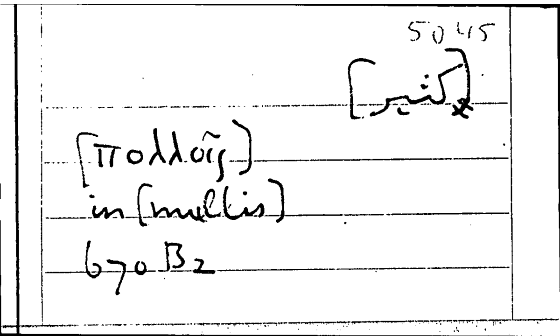 5045
[كثير]
[πολλοῖς]
in [multis]
670 B2